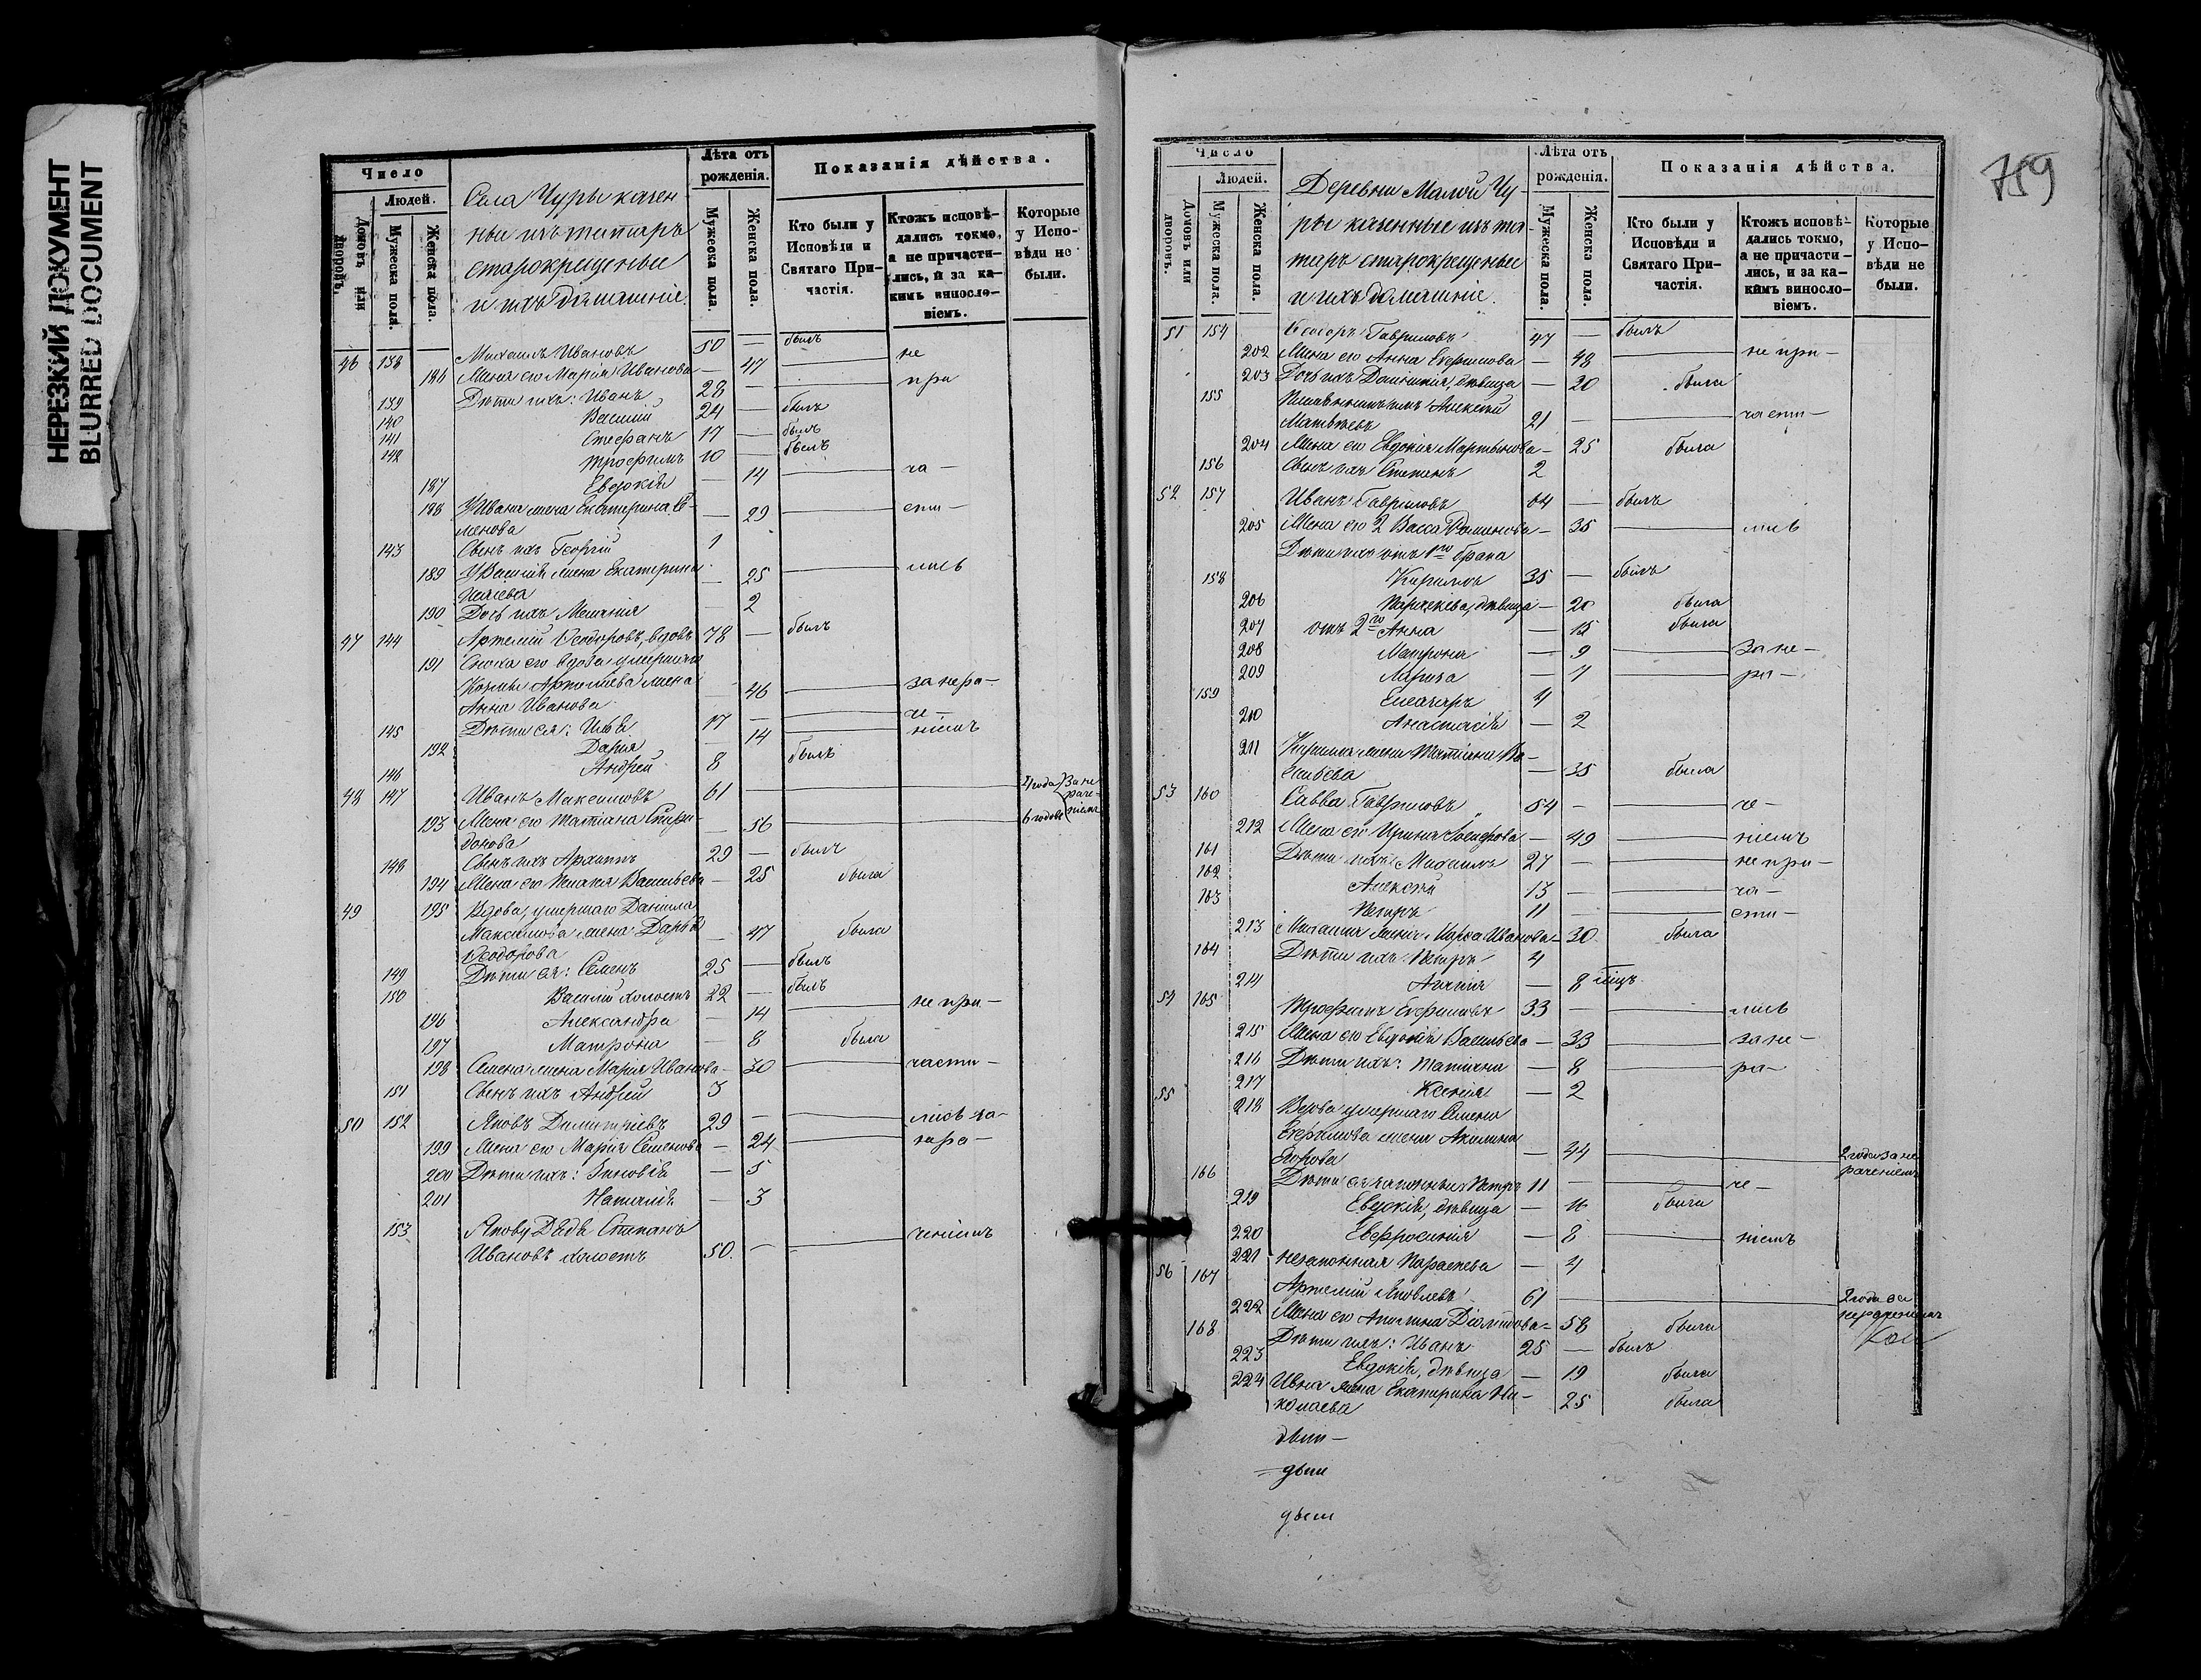 НЕРЕЗКИЙ ДОКУМЕНТ
BLURRED DOCUMENT
Число
Людей.
Домовъ или дворовъ.
Мужеска пола.
Женска пола.
Села Чуры казен-
ные изъ татаръ
старокрещеные
и ихъ домашніе.
Лѣта отъ рожденія.
Мужеска пола.
Женска пола.
Показанія дѣйства.
Кто были у Исповѣди и Святаго При-частія.
Ктожъ исповѣ-дались токмо, а не причасти-лись, и за ка-кимъ винословіемъ.
Которые у Испо-вѣди не были.
46 138 Михаилъ Ивановъ 50 — былъ
186 Жена его Марія Иванова — 47 — не
139 Дѣти ихъ: Иванъ 28 — при
140 Василий 24 — былъ
141 Стефанъ 17 — былъ
142 Трофимъ 10 — былъ
187 Евдокія — 14 — ча-
188 У Ивана жена Екатерина Се-
менова — 29 — сти-
143 Сынъ ихъ Георгій 1
189 У Василія жена Екатерина
Ильева — 25 — лись
190 Дочь ихъ Меланія — 2
47 144 Артемій Ѳеодоровъ, вдовъ 78 — былъ
191 Сноха его вдова умершаго
Козмы Артемьева жена
Анна Иванова 46 — за нера-
145 Дѣти ея: Илья 17 — че-
192 Дарія — 14 — ніемъ
146 Андрей 8 былъ
48 147 Иванъ Максимовъ 61 — 4 года За не
раче-
193 Жена его Татіана Спири-
донова — 56 — 6 годовъ ніемъ
148 Сынъ ихъ Архипъ 29 — былъ
194 Жена его Пелагія Васильева — 25 была
49 195 Вдова, умершаго Даніила
Максимова жена Дарья
Ѳеодорова — 47 была
149 Дѣти ея: Семенъ 25 — былъ
150 Василій холостъ 22 — былъ
196 Александра — 14 — не при-
197 Матрона — 8 была
198 Семена жена Марія Иванова — 30 — части-
151 Сынъ ихъ Андрей 3
50 152 Яковъ Димитріевъ 29 — лись за-
199 Жена его Марія Семенова — 24 — нера-
200 Дѣти ихъ: Зиновія — 5
201 Наталія — 3
153 Якову Дядя Степанъ
Ивановъ холостъ 50 — ченіемъ
759
Число
Людей.
Домовъ или дворовъ.
Мужеска пола.
Женска пола.
Деревни Малой Чу-
ры казенные изъ та-
таръ старокрещеные
и ихъ домашніе.
Лѣта отъ рожденія.
Мужеска пола.
Женска пола.
Показанія дѣйства.
Кто были у Исповѣди и Святаго При-частія.
Ктожъ исповѣ-дались токмо, а не причасти-лись, и за ка-кимъ винословіемъ.
Которые у Испо-вѣди не были.
51 154 Ѳеодоръ Гавриловъ 47 — былъ
202 Жена его Анна Ефимова — 48 — не при-
203 Дочь ихъ Домникія, дѣвица — 20 была
155 Алексѣй
Матвѣевъ 21 — части-
204 Жена его Евдокія Мартынова — 25 была
156 Сынъ ихъ Степанъ 2
52 157 Иванъ Гавриловъ 64 — былъ
205 Жена его 2 Васса — 35 — лись
Дѣти ихъ отъ 1го брака
158 Кириллъ 35 — былъ
206 Параскева, дѣвица — 20 была
207 отъ 2го Анна — 15 была
208 Матрона — 9 — За не-
209 Лариса — 7 — ра-
159 Елеазаръ 4
210 Анастасія — 2
211 Кирилла жена Татіана Ва-
сильева — 35 была
53 160 Савва Гавриловъ 54 — че-
212 Жена его Ирина — 49 — ніемъ
161 Дѣти ихъ: Михаилъ 27 — не при-
162 Алексѣй 13 — ча-
163 Петръ 11 — сти-
213 Михаила жена Иванова — 30 была
164 Дѣти ихъ: Петръ 4
214 — 8
54 165 Трофимъ Ефимовъ 33 — лись
215 Жена его Евдокія Васильева — 33 — за не-
216 Дѣти ихъ: Татіана — 8 — ра-
217 Ксенія — 2
55 218 Вдова умершаго Семена
Ефимова жена Акилина
Егорова — 44 — 2 года за не
раченіемъ
166 Дѣти ея законные Петръ 11 — че-
219 Евдокія, дѣвица — 16 была
220 Евфросинія — 8 — ніемъ
221 незаконная Параскева — 4
56 167 Артемій Яковлевъ 61 — 2 года за
нераченіемъ
222 Жена его — 58 была
168 Дѣти ихъ: Иванъ 25 — былъ
223 Евдокія, дѣвица — 19 была
224 Ивана жена Екатерина Ни-
колаева — 25 была